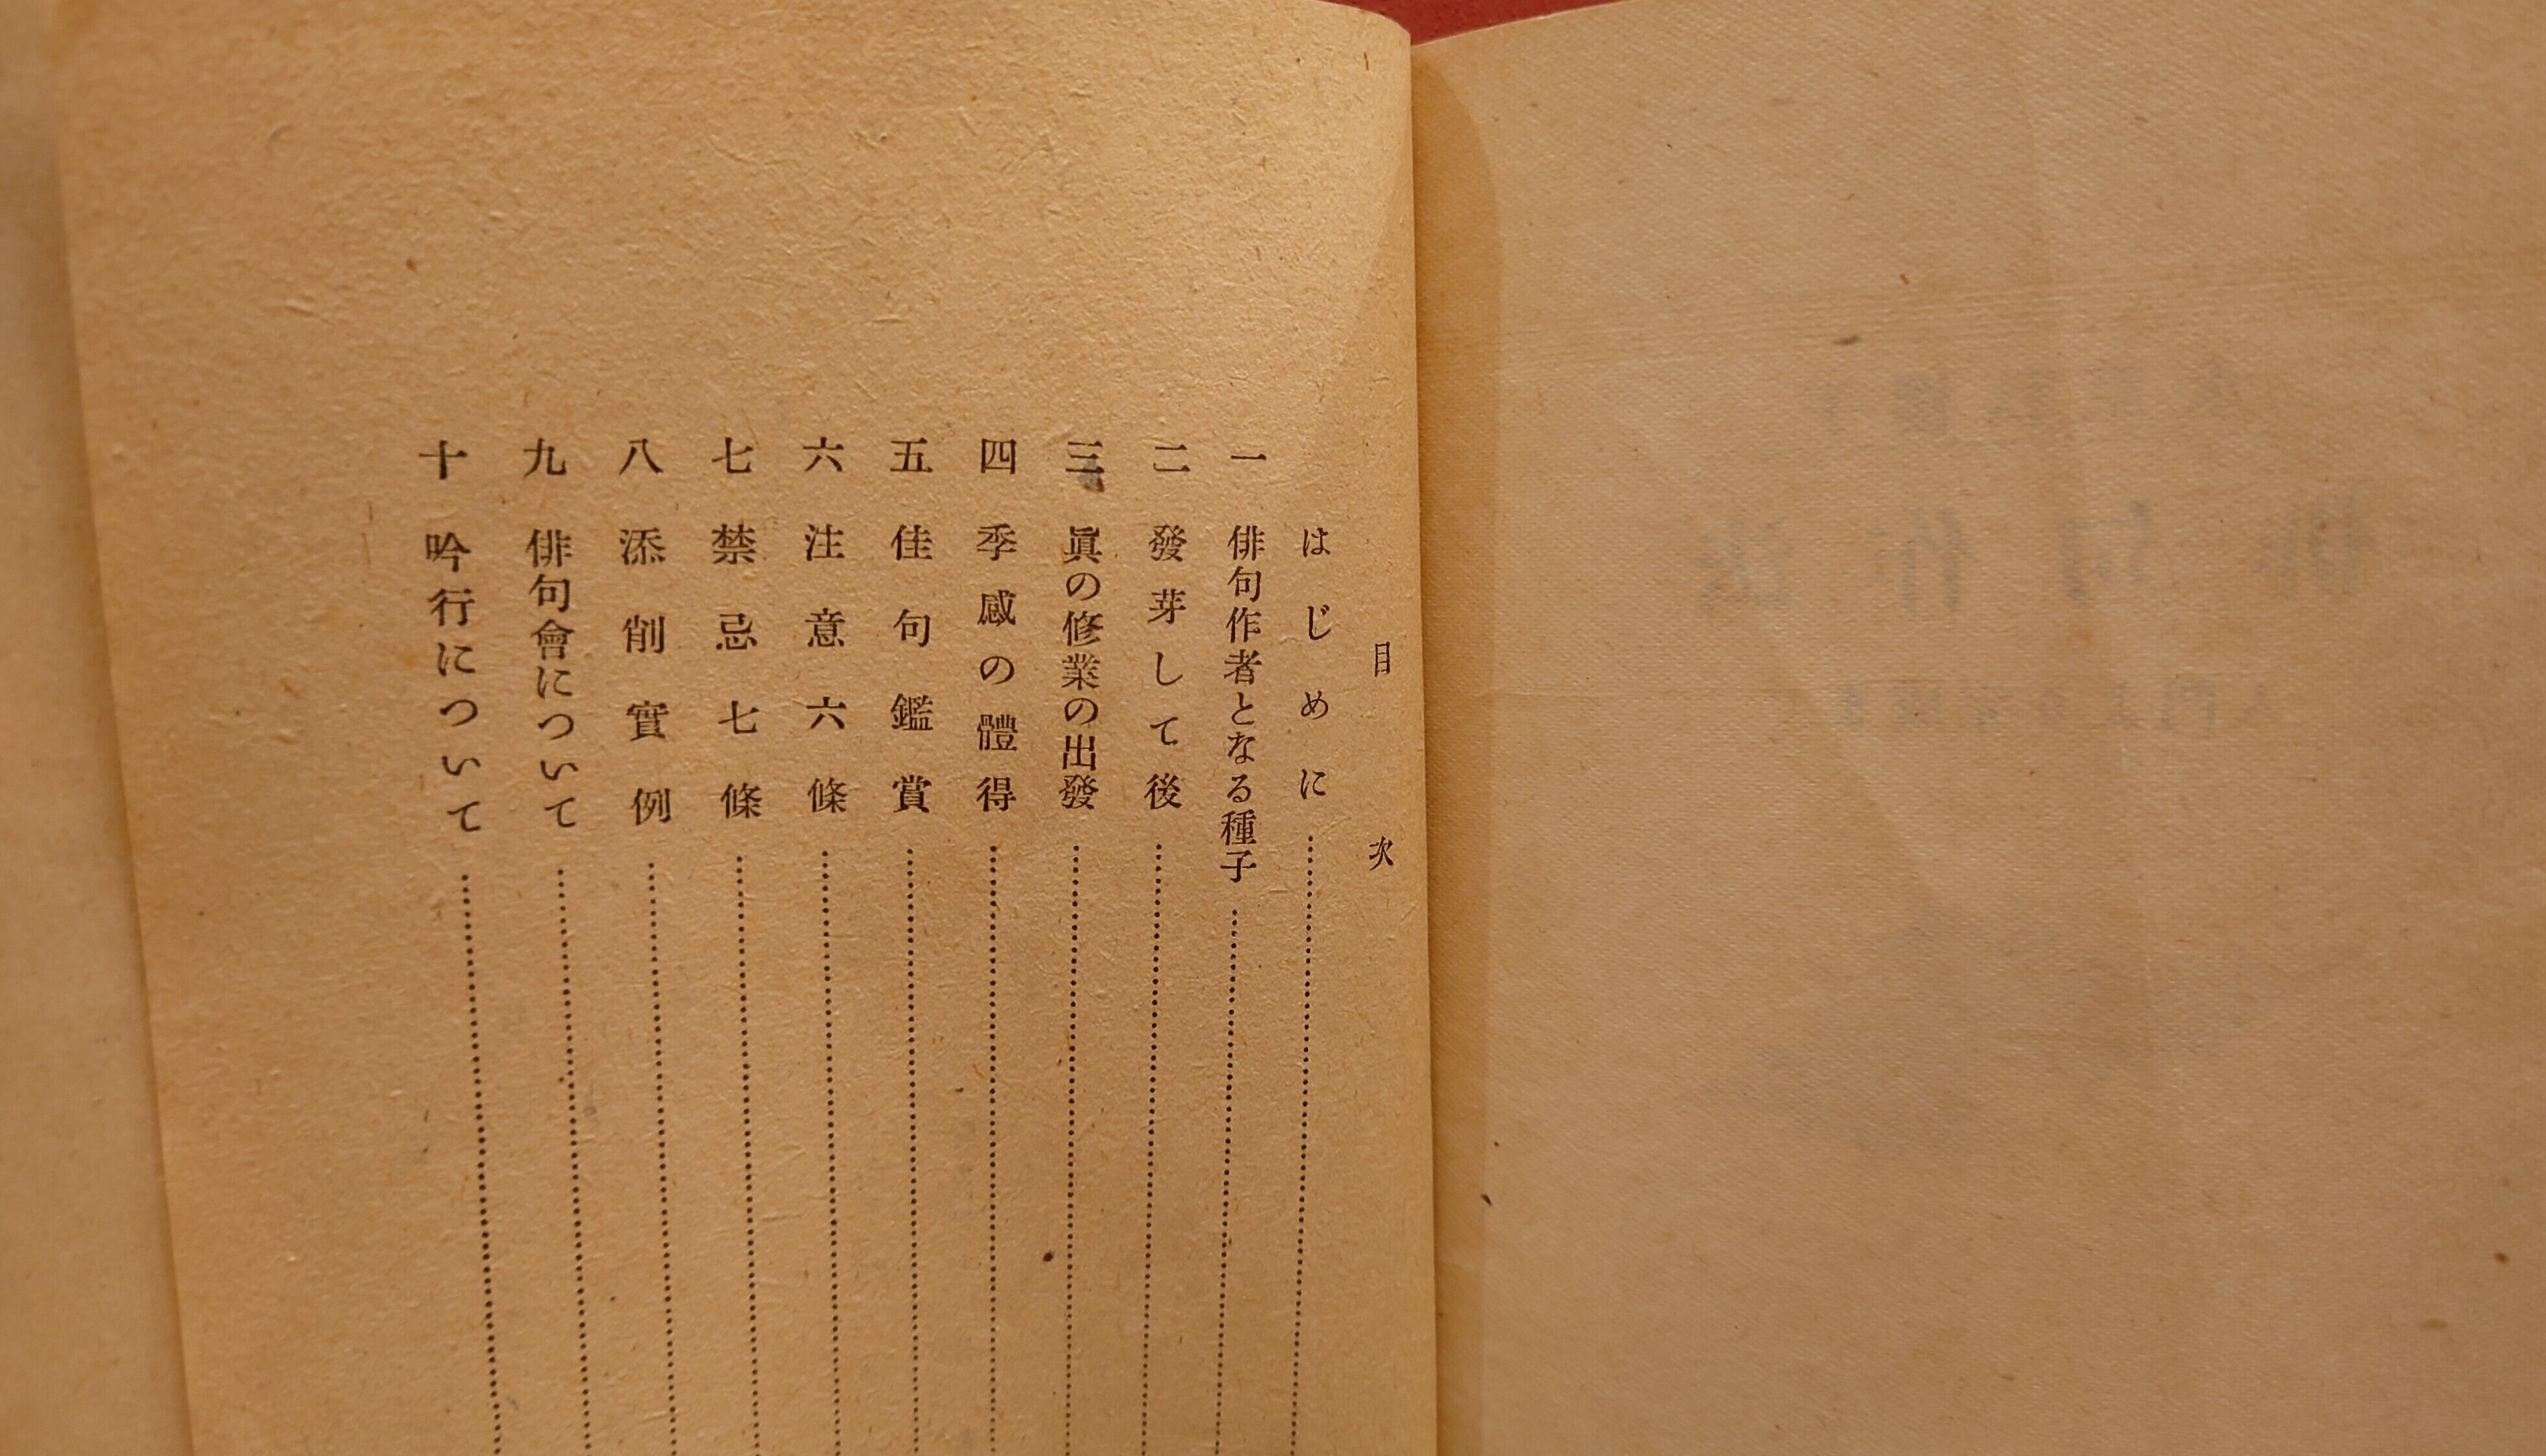 目次
はじめに
一 俳句作者となる種子
二 發芽して後
三 眞の修業の出發
四 季感の體得
五 佳句鑑賞
六 注意六條
七 禁忌七條
八 添削實例
九 俳句會について
十 吟行について